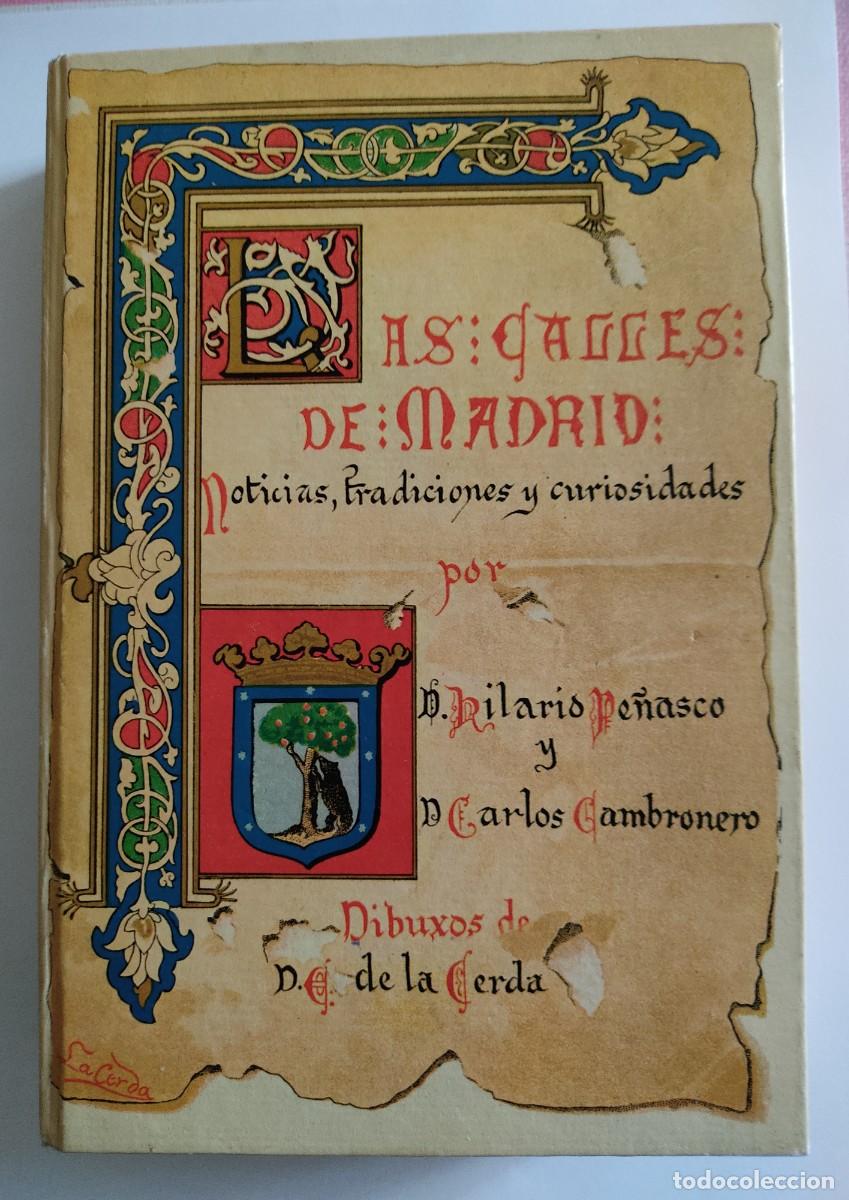 LAS : CALLES :
DE : MADRID :
Noticias, tradiciones y curiosidades
por
D. Hilario Peñasco
y
D Carlos Cambronero
Dibuxos de
D. E. de la Cerda
La Cerda
todocoleccion